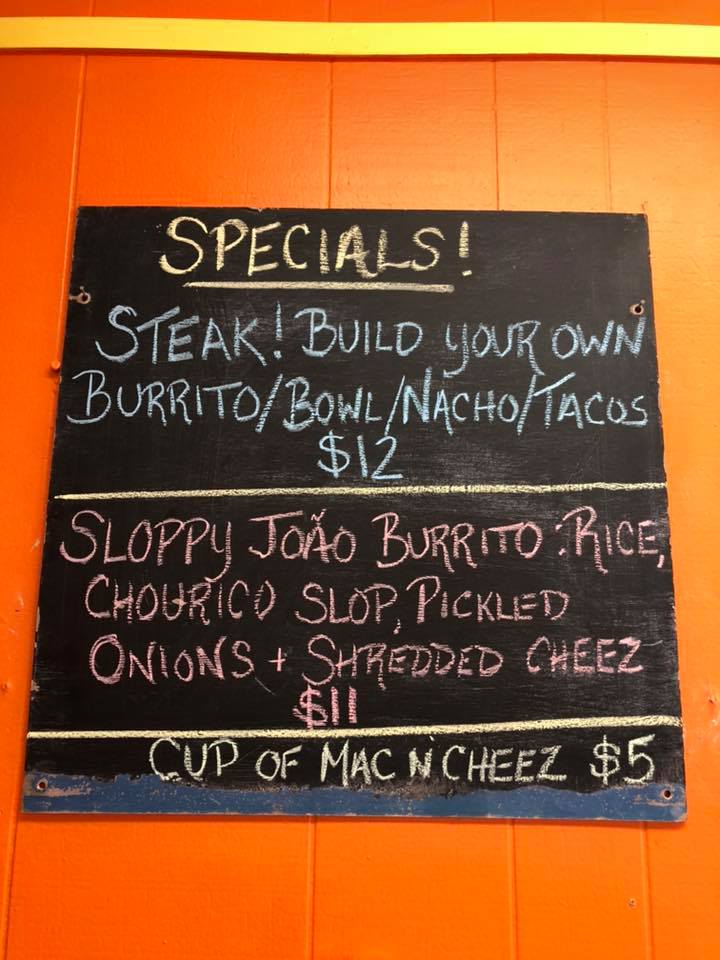 SPECIALS!
STEAK! BUILD YOUR OWN
BURRITO/BOWL/NACHO/TACOS
$12
SLOPPY JOÃO BURRITO: RICE,
CHOURICO SLOP, PICKLED
ONIONS + SHREDDED CHEEZ
$11
CUP OF MAC N' CHEEZ $5